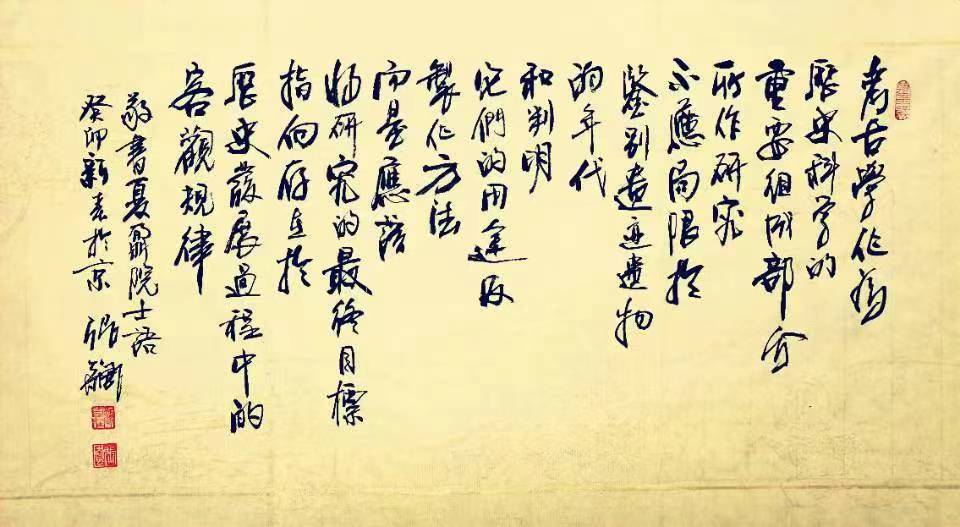 考古學作為
歷史科学的
重要組成部分
所作研究
不應局限於
鑒别遺迹遺物
的年代
和判明
它們的用途及
製作方法
而是應當
将研究的最終目標
指向存在於
歷史發展過程中的
客觀規律
敬書夏鼐院士語
癸卯新春於京